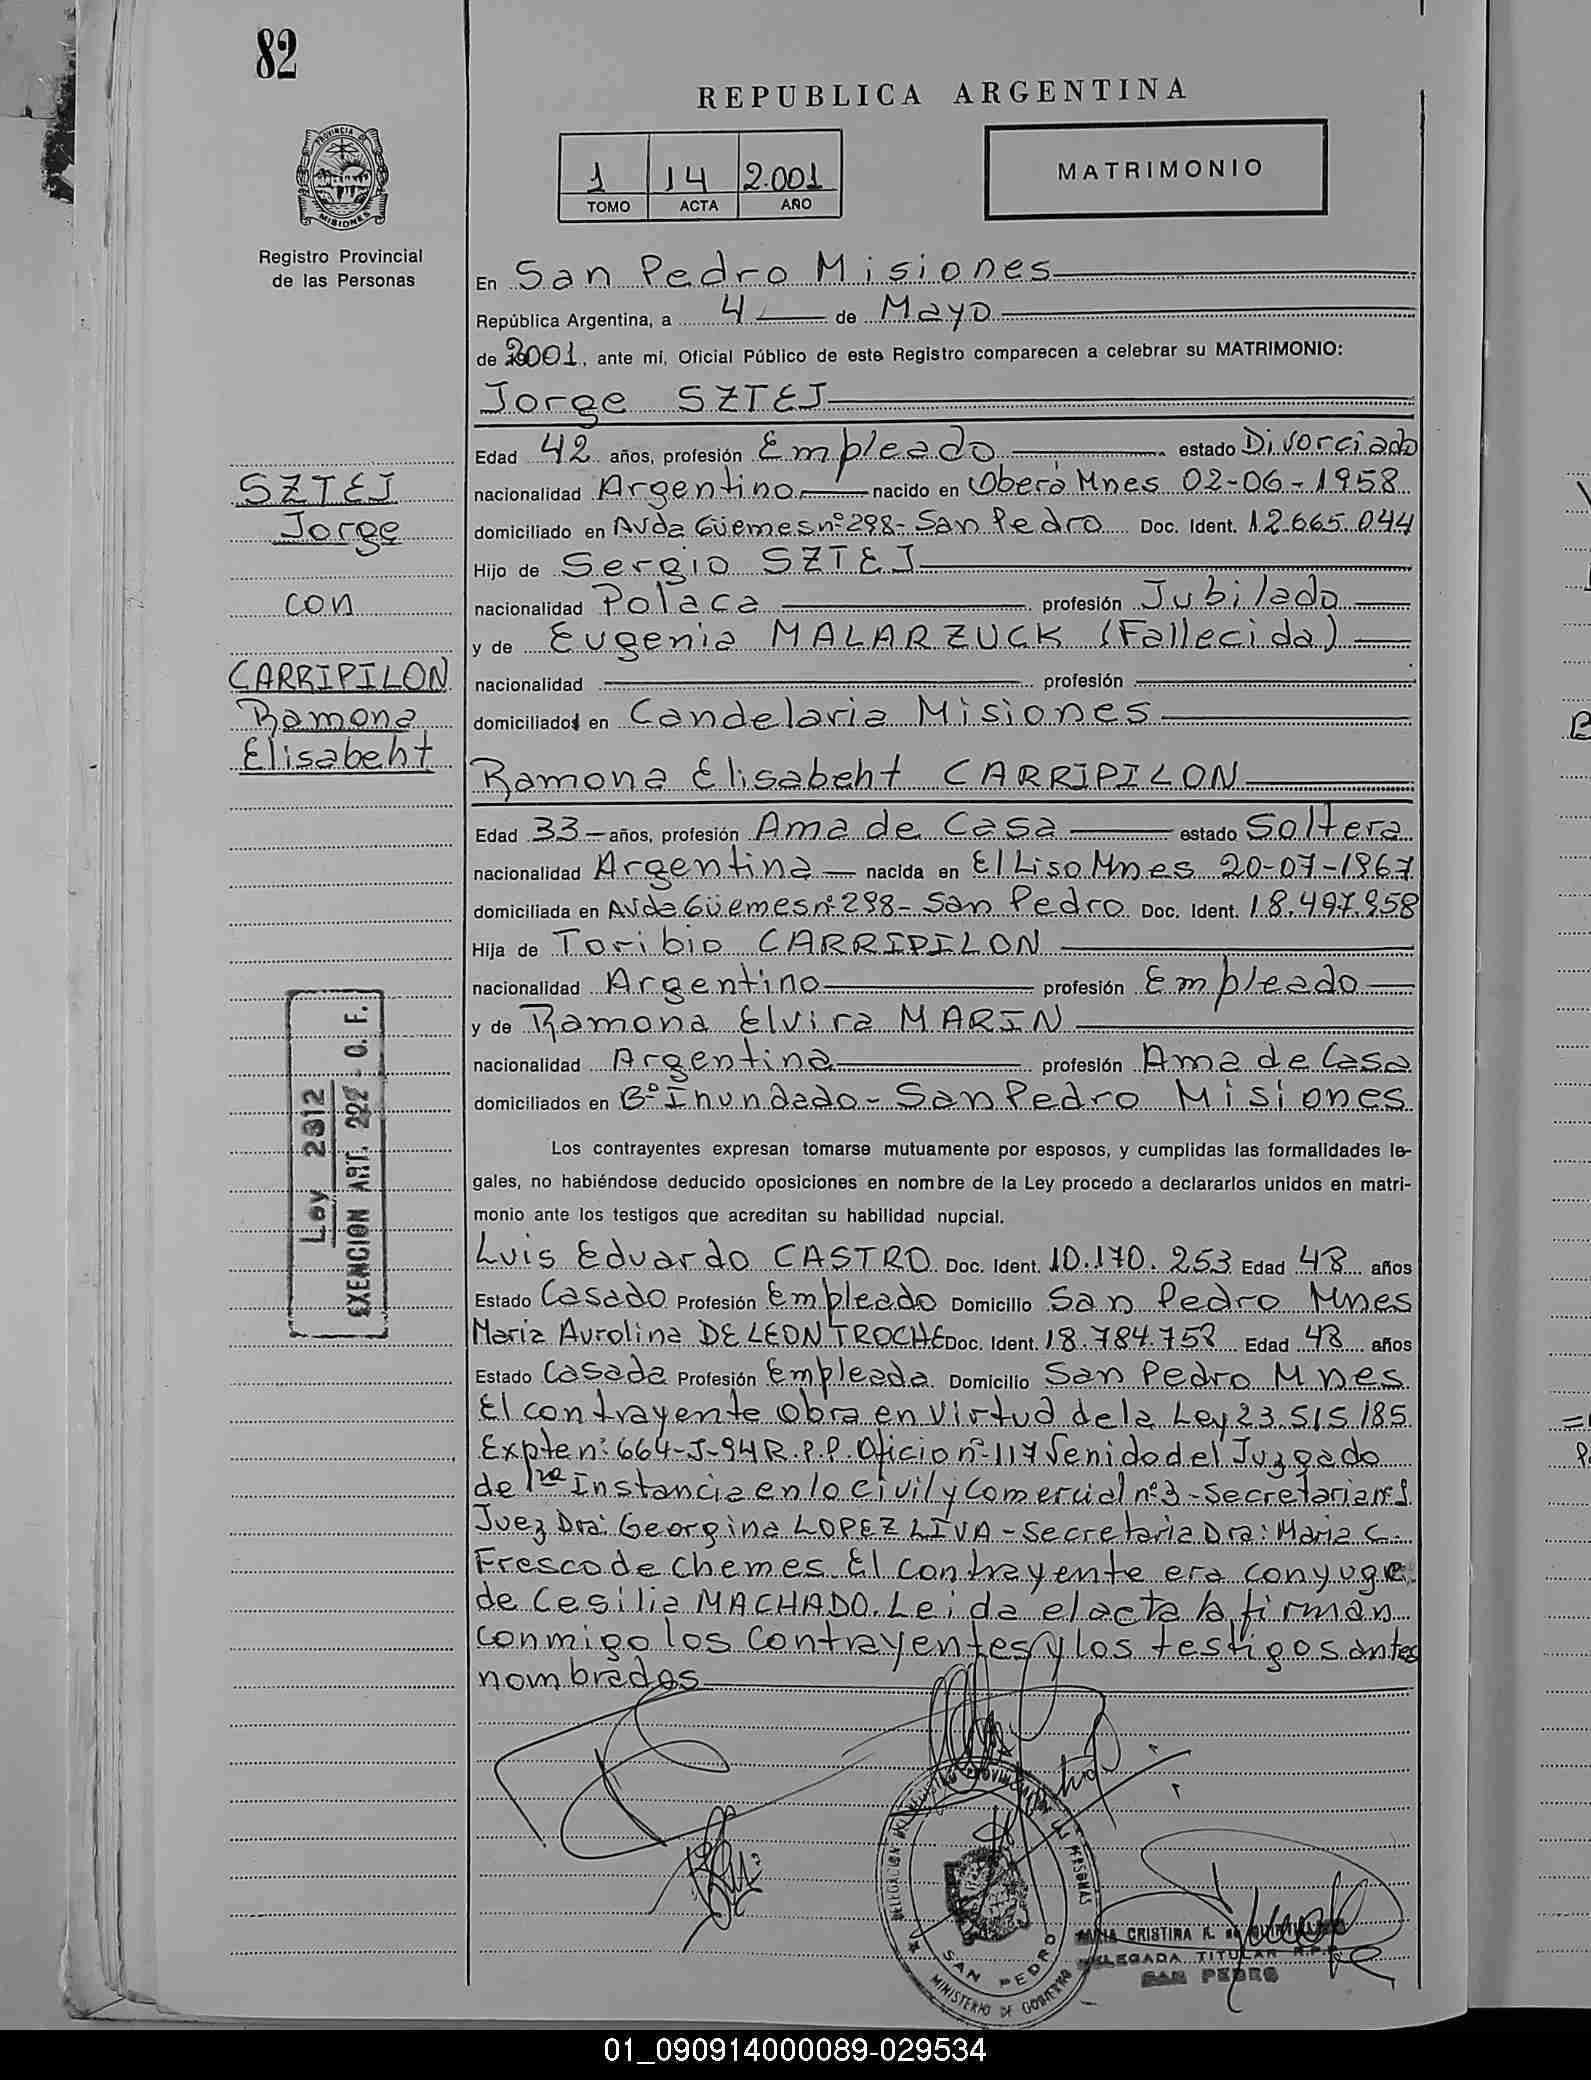 82
REPUBLICA ARGENTINA
PROVINCIA DE MISIONES
1 14 2.001
TOMO ACTA AÑO
MATRIMONIO
Registro Provincial
de las Personas
En San Pedro Misiones
República Argentina, a 4 de Mayo
de 2001, ante mi, Oficial Público de este Registro comparecen a celebrar su MATRIMONIO:
Jorge SZTEJ
Edad 42 años, profesión Empleado estado Divorciado
nacionalidad Argentino nacido en Oberá Mnes 02-06-1958
domiciliado en Avda Güemes nº 298- San Pedro Doc. Ident. 12.665.044
Hijo de Sergio SZTEJ
nacionalidad Polaca profesión Jubilado
y de Eugenia MALARZUCK (Fallecida)
nacionalidad profesión
domiciliados en Candelaria Misiones
SZTEJ
Jorge
con
CARRIPILON
Ramona
Elisabeht
Ramona Elisabeht CARRIPILON
Edad 33 años, profesión Ama de Casa estado Soltera
nacionalidad Argentina nacida en El Liso Mnes 20-07-1967
domiciliada en Avda Güemes nº 298- San Pedro Doc. Ident. 18.497.958
Hija de Toribio CARRIPILON
nacionalidad Argentino profesión Empleado
y de Ramona Elvira MARIN
nacionalidad Argentina profesión Ama de Casa
domiciliados en Bº Inundado- San Pedro Misiones
Ley 2312
EXENCION ART. 222 - O. F.
Los contrayentes expresan tomarse mutuamente por esposos, y cumplidas las formalidades le-
gales, no habiéndose deducido oposiciones en nombre de la Ley procedo a declararlos unidos en matri-
monio ante los testigos que acreditan su habilidad nupcial.
Luis Eduardo CASTRO Doc. Ident. 10.170.253 Edad 48 años
Estado Casado Profesión Empleado Domicilio San Pedro Mnes
Maria Aurolina DE LEON TROCHE Doc. Ident. 18.784.758 Edad 48 años
Estado Casada Profesión Empleada Domicilio San Pedro Mnes
El contrayente obra en virtud de la Ley 23.515/85
Expte nº: 664-J-94 R.P.P. Oficio nº 117 Venido del Juzgado
de 1ra Instancia en lo Civil y Comercial nº 3 - Secretaria nº 1
Juez Dra: Georgina LOPEZ LIVA - Secretaria Dra: Maria C.
Fresco de Chemes. El contrayente era conyuge
de Cesilia MACHADO. Leida el acta la firman
conmigo los contrayentes y los testigos antes
nombrados
DELEGACION DEL REGISTRO PROVINCIAL DE LAS PERSONAS
SAN PEDRO
MINISTERIO DE GOBIERNO
CRISTINA R. de
DELEGADA TITULAR R.P.P.
SAN PEDRO
01_090914000089-029534